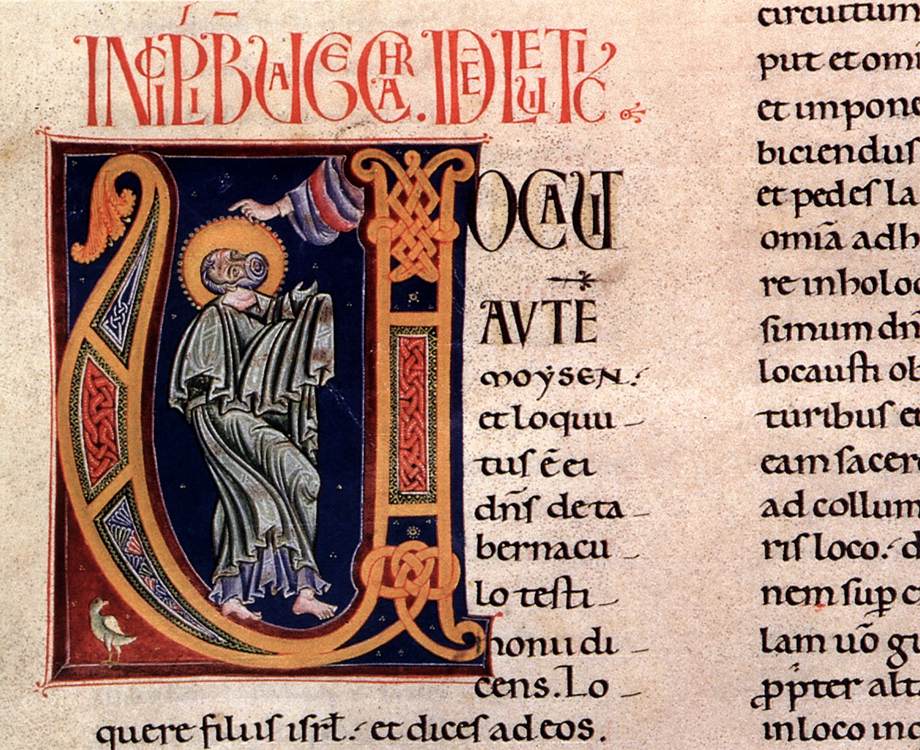 UOCAUIT
AVTĒ
MOYSEN:
et loquu
tus ē ei
dn̄s de ta
bernacu
lo testi
monii di
cens. Lo
quere filiis isrł: et dices ad eos.
circuitum
put et om
et impon
biciendus
et pedes la
omīa adh
re in holo
simum dn̄
locausti ob
turibus e
eam sacer
ad collum
ris loco: d
nem sup
lam uō gu
pp̄ter alta
in loco in